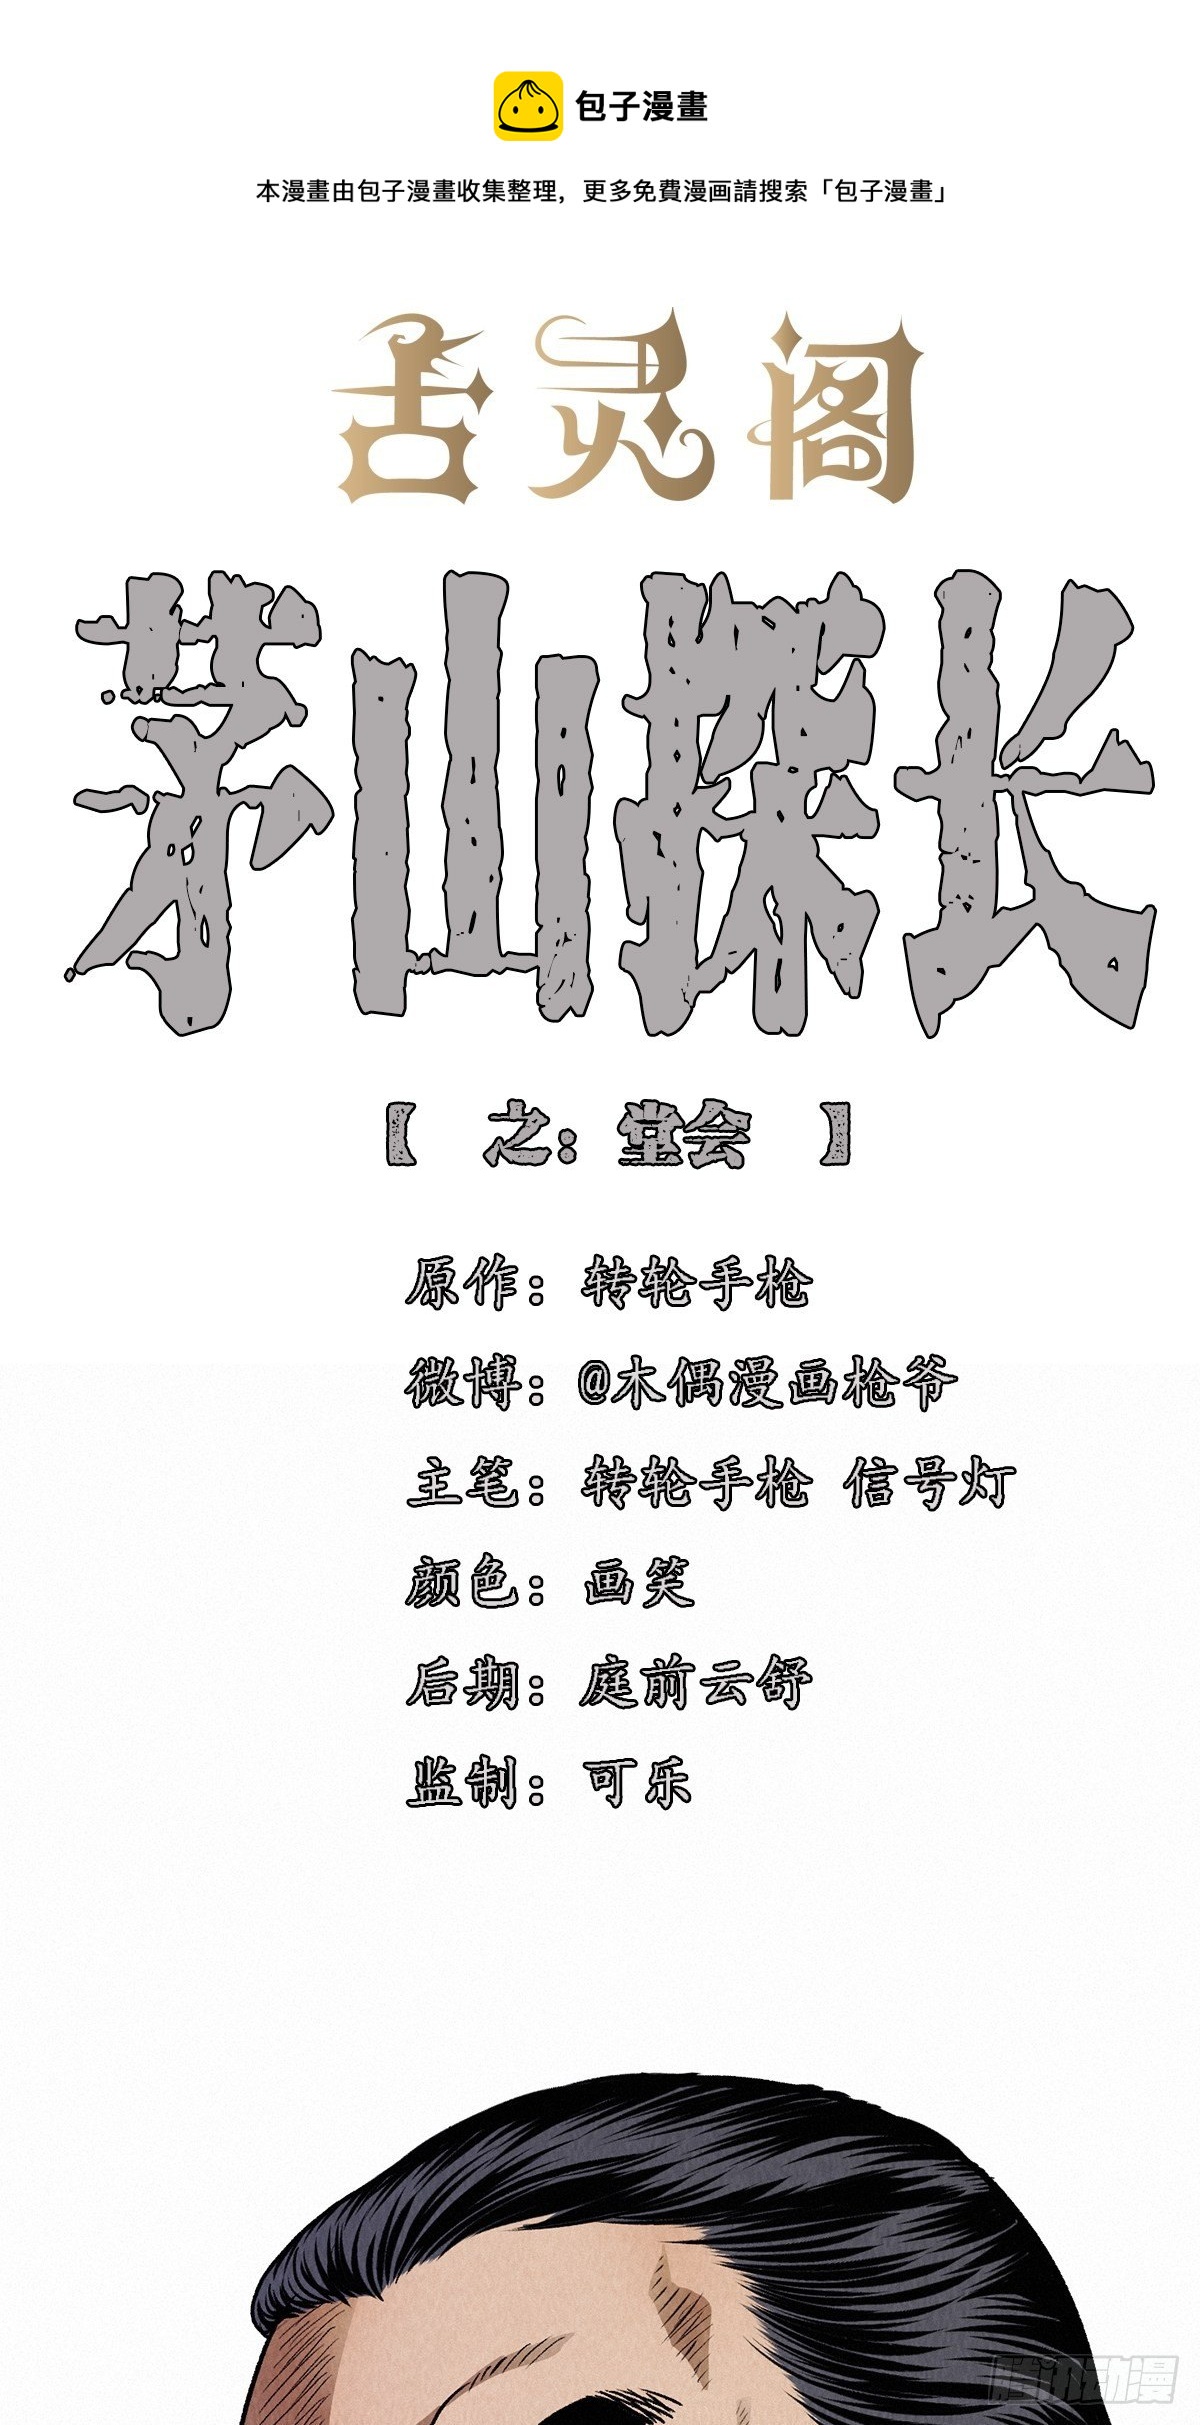 包子漫畫
本漫畫由包子漫畫收集整理，更多免費漫画請搜索「包子漫畫」
古灵阁
茅山探长
【 之：堂会 】
原作：转轮手枪
微博：@木偶漫画枪爷
主笔：转轮手枪 信号灯
颜色：画笑
后期：庭前云舒
监制：可乐
腾讯动漫